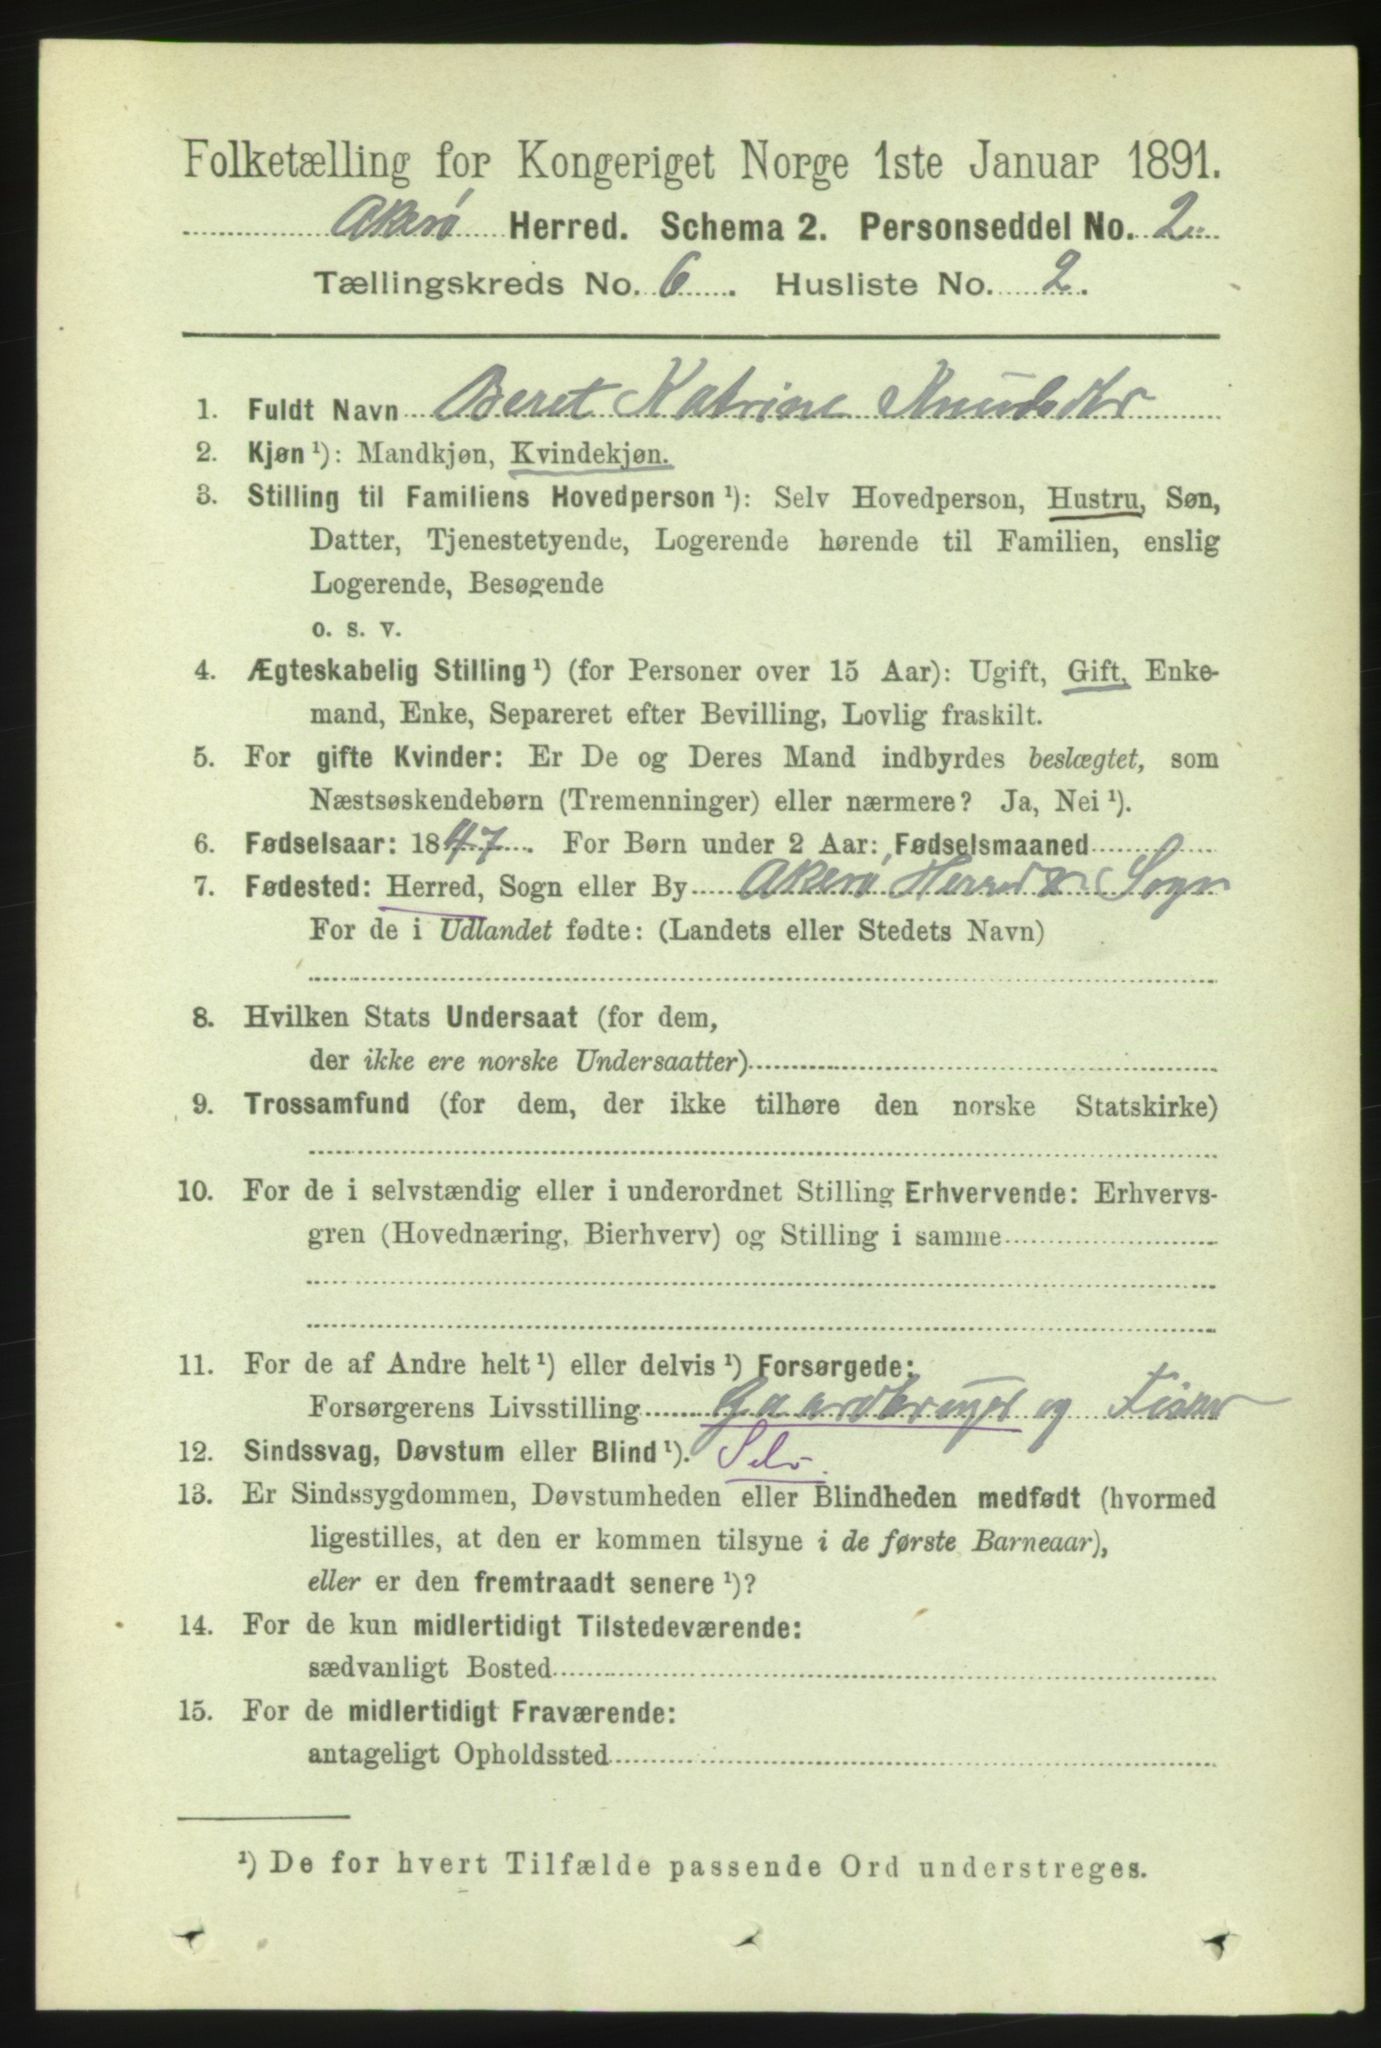 Folketælling for Kongeriget Norge 1ste Januar 1891.
Akerø Herred. Schema 2. Personseddel No. 2
Tællingskreds No. 6. Husliste No. 2.
1. Fuldt Navn Beret Katrine Knudsdtr
2. Kjøn ¹): Mandkjøn, Kvindekjøn.
3. Stilling til Familiens Hovedperson ¹): Selv Hovedperson, Hustru, Søn,
Datter, Tjenestetyende, Logerende hørende til Familien, enslig
Logerende, Besøgende
o. s. v.
4. Ægteskabelig Stilling ¹) (for Personer over 15 Aar): Ugift, Gift, Enke-
mand, Enke, Separeret efter Bevilling, Lovlig fraskilt.
5. For gifte Kvinder: Er De og Deres Mand indbyrdes beslægtet, som
Næstsøskendebørn (Tremenninger) eller nærmere? Ja, Nei ¹).
6. Fødselsaar: 1847. For Børn under 2 Aar: Fødselsmaaned
7. Fødested: Herred, Sogn eller By Akerø Herred Sogn
For de i Udlandet fødte: (Landets eller Stedets Navn)
8. Hvilken Stats Undersaat (for dem,
der ikke ere norske Undersaatter)
9. Trossamfund (for dem, der ikke tilhøre den norske Statskirke)
10. For de i selvstændig eller i underordnet Stilling Erhvervende: Erhvervs-
gren (Hovednæring, Bierhverv) og Stilling i samme
11. For de af Andre helt ¹) eller delvis ¹) Forsørgede:
Forsørgerens Livsstilling Gaardbruger og Fisker
12. Sindssvag, Døvstum eller Blind ¹). Selv.
13. Er Sindssygdommen, Døvstumheden eller Blindheden medfødt (hvormed
ligestilles, at den er kommen tilsyne i de første Barneaar),
eller er den fremtraadt senere ¹)?
14. For de kun midlertidigt Tilstedeværende:
sædvanligt Bosted
15. For de midlertidigt Fraværende:
antageligt Opholdssted
¹) De for hvert Tilfælde passende Ord understreges.